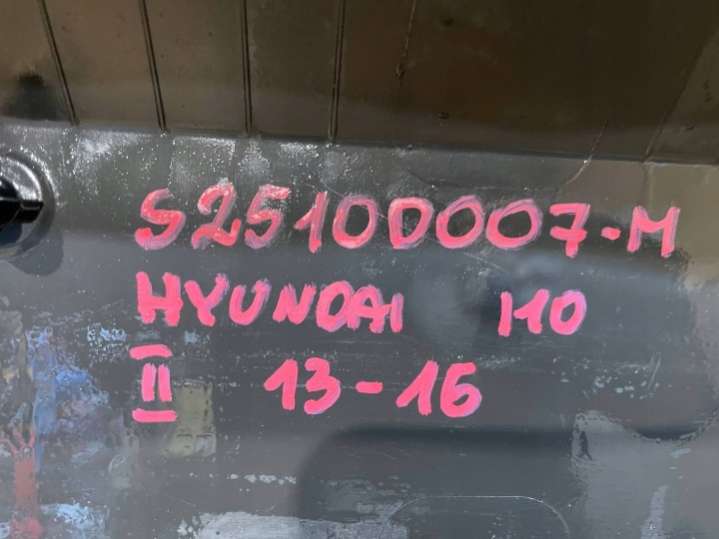 S2510D007-M
HYUNDAI I10
II 13-16